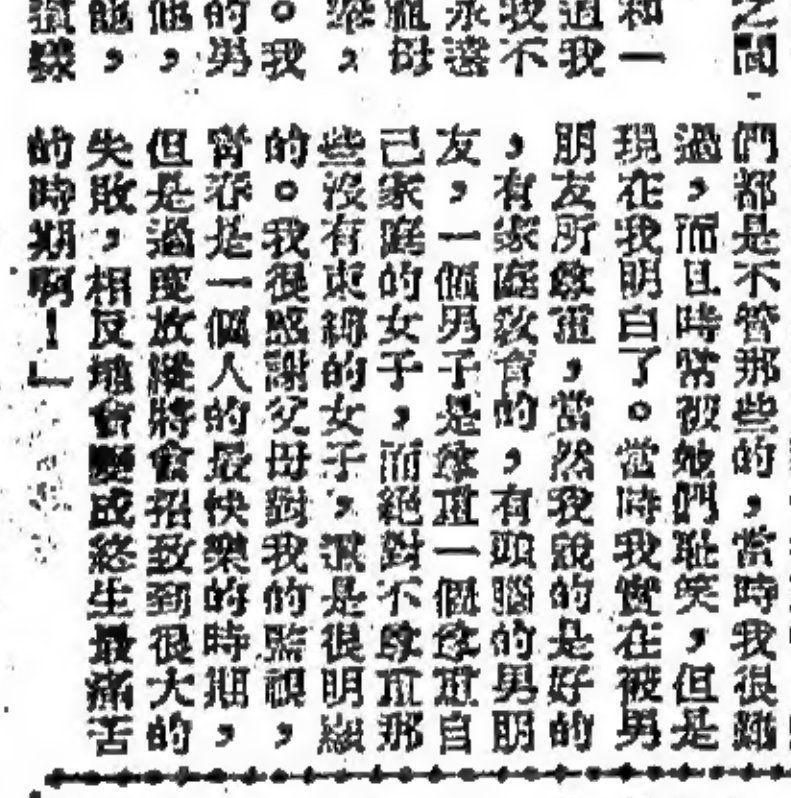 之間
和一
過我
我不
永遠
祖母
，
。我
的男
他，
能，
樣
們都是不管那些的，當時我很難
過，而且時常被她們恥笑，但是
現在我明白了。當時我實在被男
朋友所尊重，當然我說的是好的
，有家庭教育的，有頭腦的男朋
友，一個男子是尊重一個尊重自
己家庭的女子，而絕對不尊重那
些沒有束縛的女子，這是很明顯
的。我很感謝父母對我的監視，
青春是一個人的最快樂的時期，
但是過度放縱將會招致到很大的
失敗，相反地會變成終生最痛苦
的時期啊！」